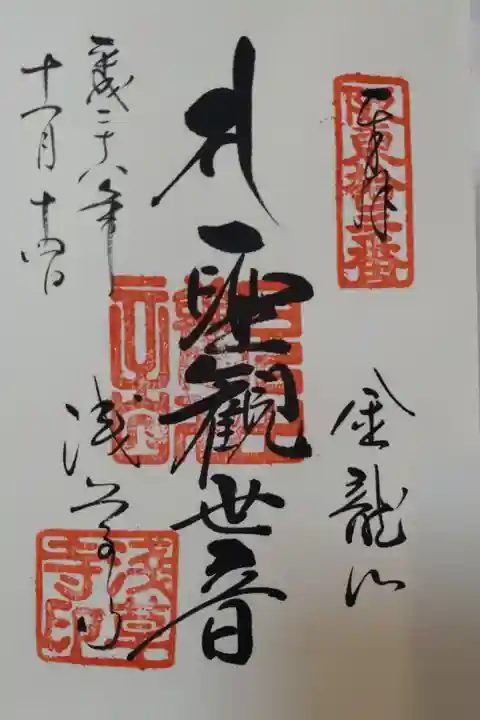 奉拝
坂東拾三番
金龍山
聖観世音
浅草寺
浅草寺印
平成二十八年
十一月十四日